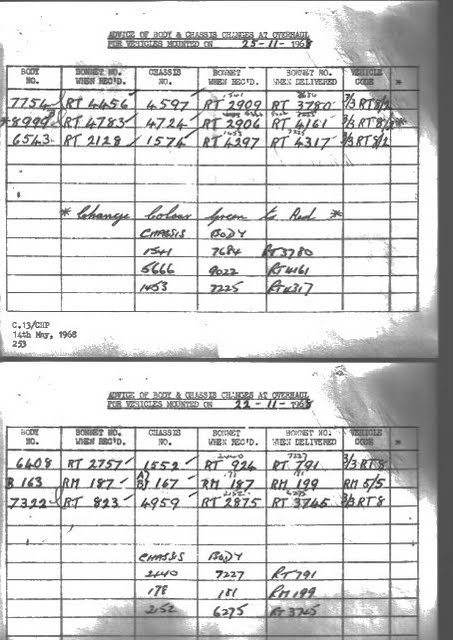 ADVICE OF BODY & CHASSIS CHANGES AT OVERHAUL
FOR VEHICLES MOUNTED ON 25-11-1968
BODY NO. BONNET NO. WHEN REC'D. CHASSIS NO. BONNET WHEN REC'D. BONNET NO. WHEN DELIVERED VEHICLE CODE *
7754 RT 4456 4597 RT 2909 RT 3780 2/3 RT 8/2
*8999 RT 4783 4724 RT 2906 RT 4161
6543 RT 2128 1574 RT 4297 RT 4317 3/3 RT 8/2
* Change Colour Green to Red *
CHASSIS BODY
1541 7684 RT3780
5666 9022 RT4161
1453 7225 RT4317
C.13/CHP
14th May, 1968
253
ADVICE OF BODY & CHASSIS CHANGES AT OVERHAUL
FOR VEHICLES MOUNTED ON 22-11-1968
BODY NO. BONNET NO. WHEN REC'D. CHASSIS NO. BONNET WHEN REC'D. BONNET NO. WHEN DELIVERED VEHICLE CODE *
6408 RT 2757 1552 RT 924 RT 791 3/3 RT 8
B 163 RM 187 167 RM 187 RM 199 RM 5/5
7322 RT 823 4959 RT 2875 RT 3745 3/3 RT8
CHASSIS BODY
2440 7227 RT791
178 181 RM199
2152 6275 RT3745